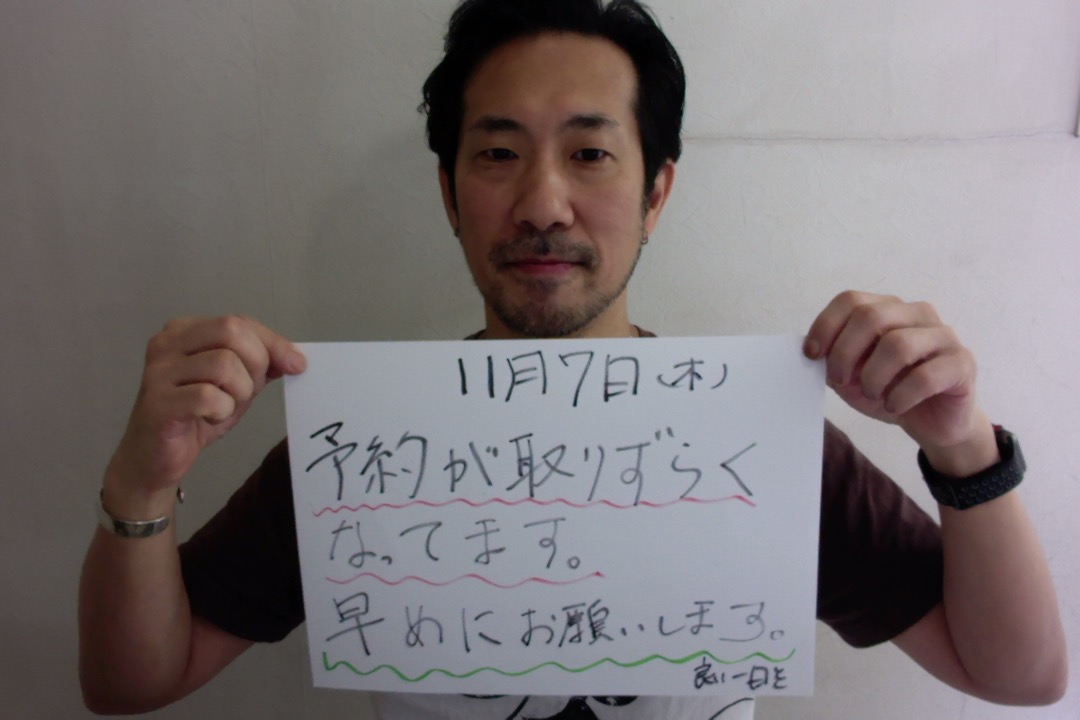 11月7日(木)
予約が取りずらく
なってます。
早めにお願いします。
良い一日を